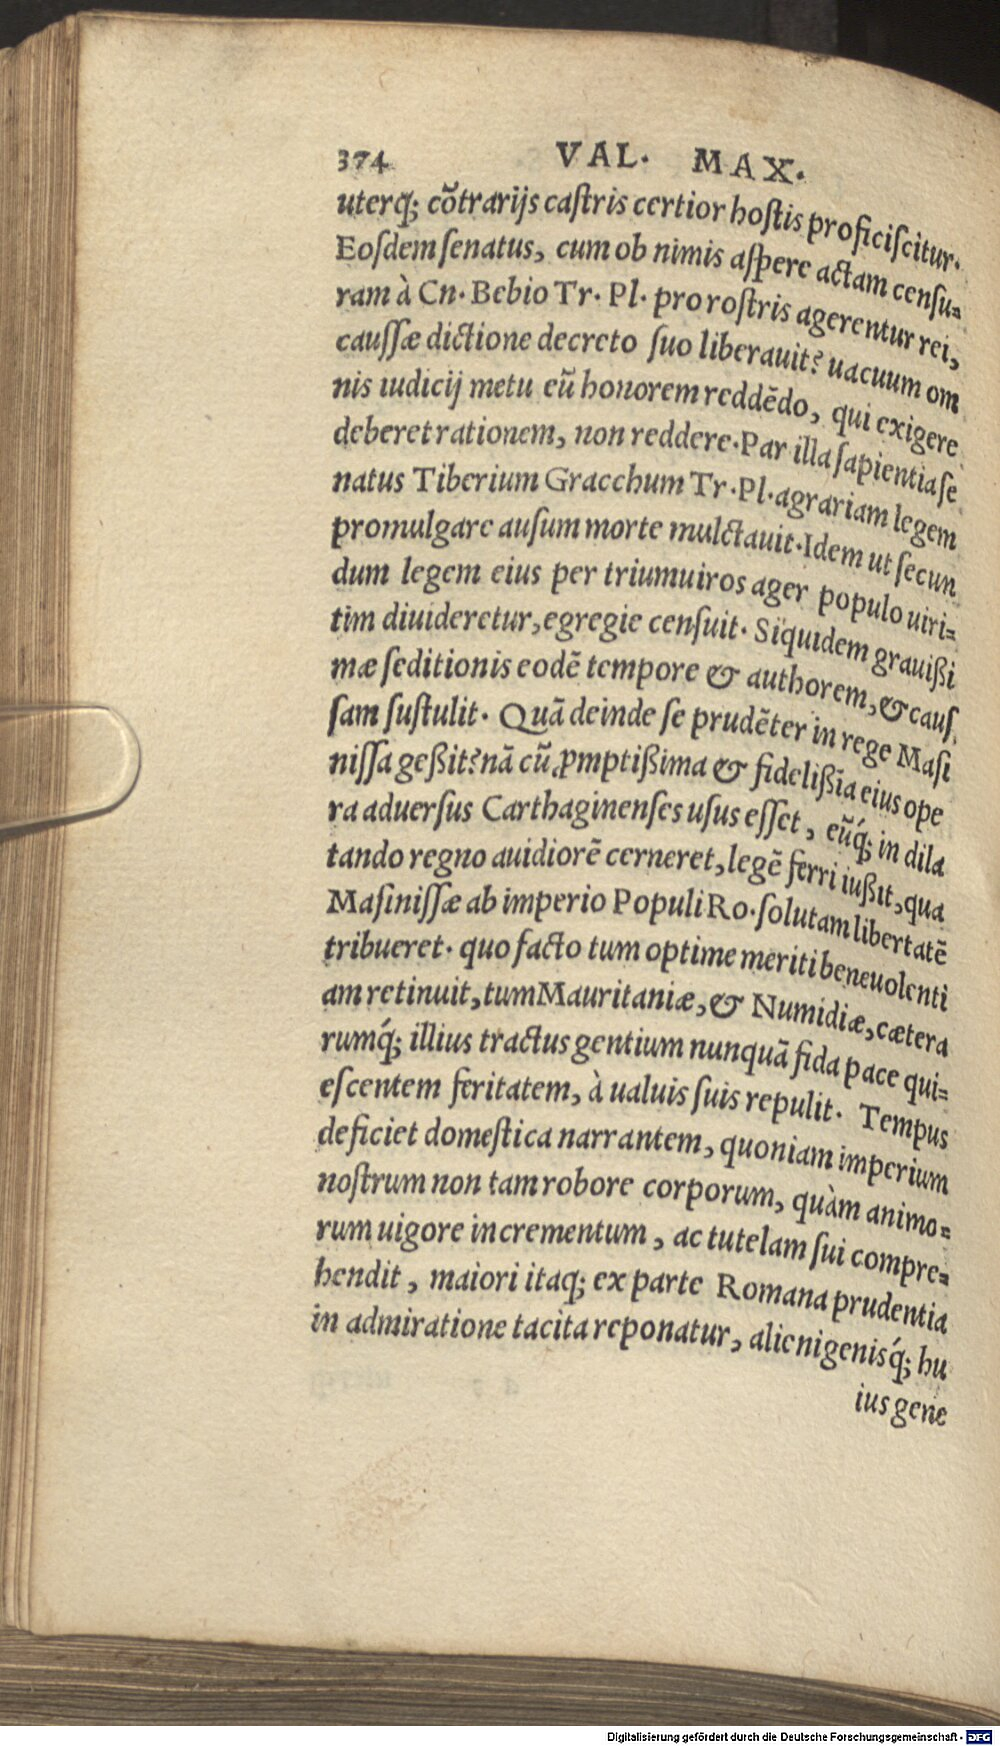 374 VAL. MAX.
uterq; cõtrarijs caſtris certior hoſtis proficiſcitur.
Eoſdem ſenatus, cum ob nimis aſpere actam cenſu=
ram à Cn. Bebio Tr. Pl. pro roſtris agerentur rei,
cauſſæ dictione decreto ſuo liberauit? uacuum om
nis iudicij metu eũ honorem reddẽdo, qui exigere
deberet rationem, non reddere. Par illa ſapientia ſe
natus Tiberium Gracchum Tr. Pl. agrariam legem
promulgare auſum morte mulctauit. Idem ut ſecun
dum legem eius per triumuiros ager populo uiri=
tim diuideretur, egregie cenſuit. Siquidem grauißi
mæ ſeditionis eodẽ tempore & authorem, & cauſ
ſam ſuſtulit. Quã deinde ſe prudẽter in rege Maſi
niſſa geßit? nã cũ ꝓmptißima & fidelißĩa eius ope
ra aduerſus Carthaginenſes uſus eſſet, eũq́; in dila
tando regno auidiorẽ cerneret, legẽ ferri iußit, qua
Maſiniſſæ ab imperio Populi Ro. ſolutam libertatẽ
tribueret. quo facto tum optime meriti beneuolenti
am retinuit, tum Mauritaniæ, & Numidiæ, cætera
rumq́; illius tractus gentium nunquã fida pace qui=
eſcentem feritatem, à ualuis ſuis repulit. Tempus
deficiet domeſtica narrantem, quoniam imperium
noſtrum non tam robore corporum, quàm animo=
rum uigore incrementum, ac tutelam ſui compre=
hendit, maiori itaq; ex parte Romana prudentia
in admiratione tacita reponatur, alienigenisq́; hu
ius gene
Digitalisierung gefördert durch die Deutsche Forschungsgemeinschaft - DFG